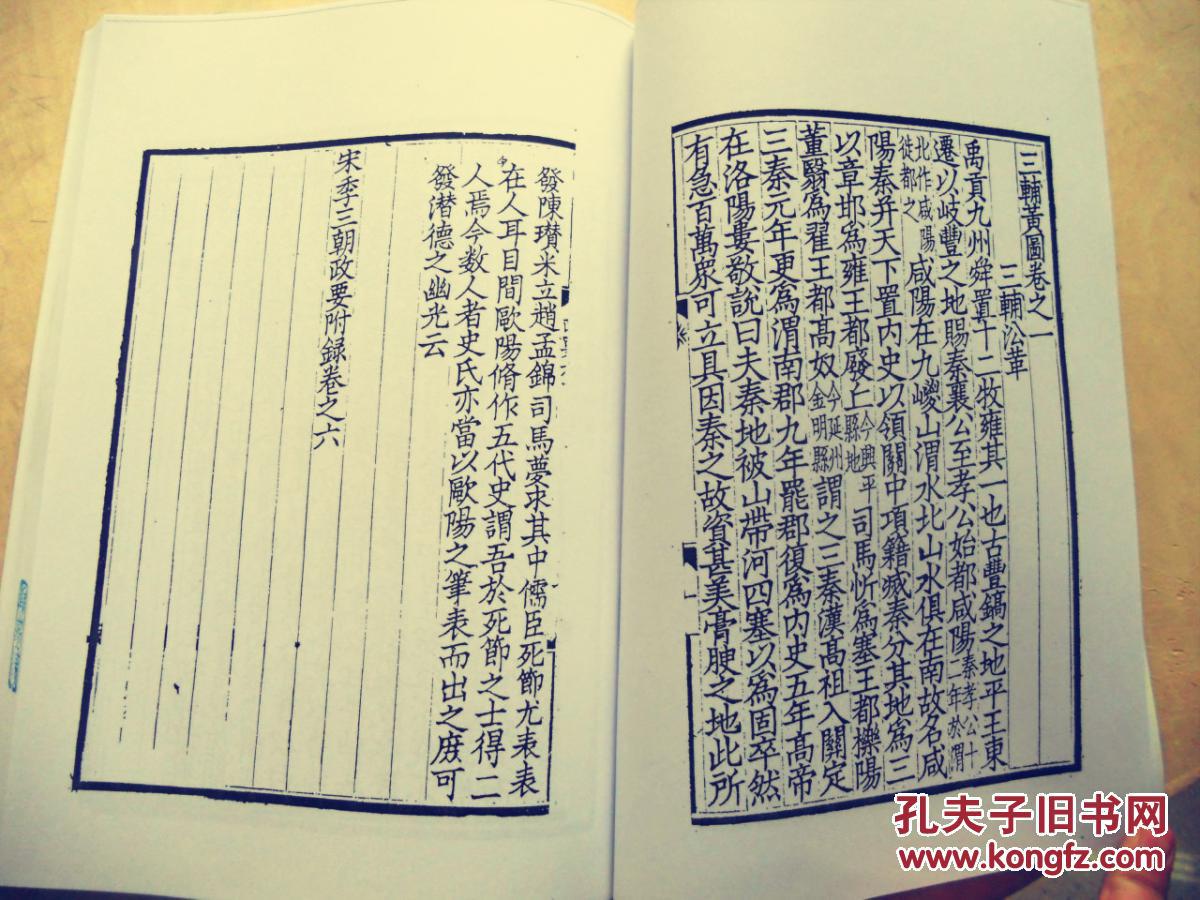 三輔黃圖卷之一
三輔沿革
禹貢九州舜置十二牧雍其一也古豐鎬之地平王東
遷以岐豐之地賜秦襄公至孝公始都咸陽秦孝公十二年於渭
北作咸陽徙都之咸陽在九嵕山渭水北山水俱在南故名咸
陽秦并天下置内史以領關中項籍滅秦分其地為三
以章邯為雍王都廢丘今興平縣地司馬忻為塞王都櫟陽
董翳為翟王都高奴今延州金明縣謂之三秦漢高祖入關定
三秦元年更為渭南郡九年罷郡復為内史五年高帝
在洛陽婁敬說曰夫秦地被山帶河四塞以為固卒然
有急百萬衆可立具因秦之故資甚美膏腴之地此所
發陳瓚米立趙孟錦司馬夢求其中儒臣死節尤表表
在人耳目間歐陽脩作五代史謂吾於死節之士得二
人焉今数人者史氏亦當以歐陽之筆表而出之庶可
發潜德之幽光云
宋季三朝政要附録卷之六
孔夫子旧书网
www.kongfz.com